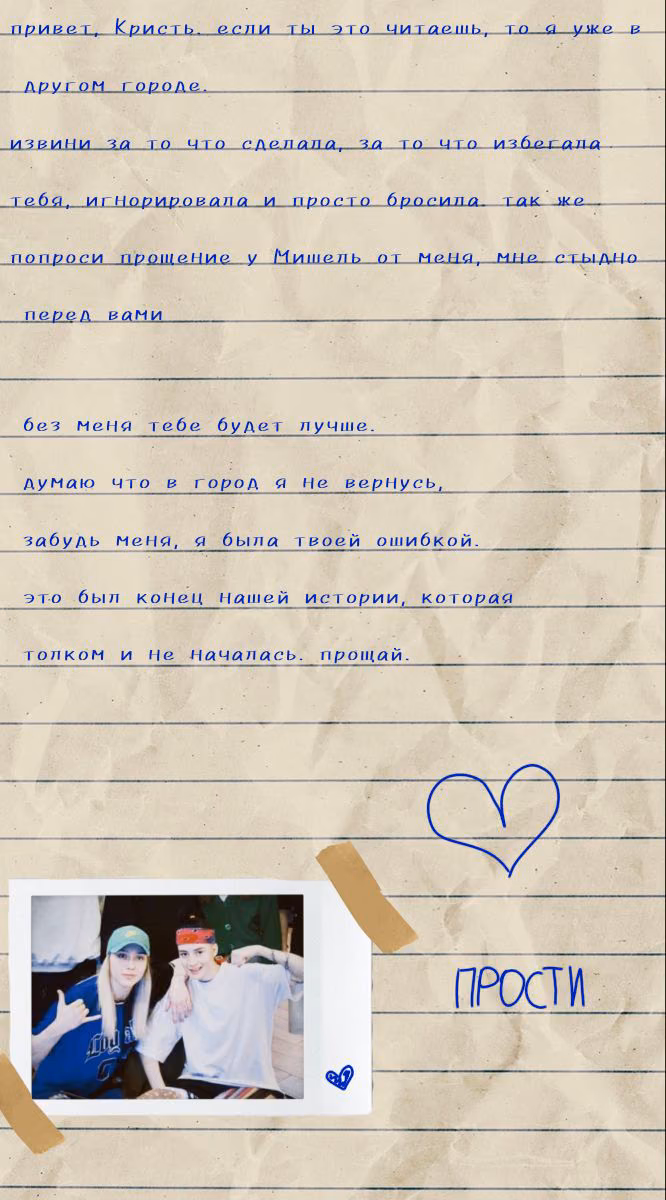 привет, Кристь. если ты это читаешь, то я уже в
другом городе.
извини за то что сделала, за то что избегала
тебя, игнорировала и просто бросила. так же
попроси прощение у Мишель от меня, мне стыдно
перед вами
без меня тебе будет лучше.
думаю что в город я не вернусь,
забудь меня, я была твоей ошибкой.
это был конец нашей истории, которая
толком и не началась. прощай.
ПРОСТИ